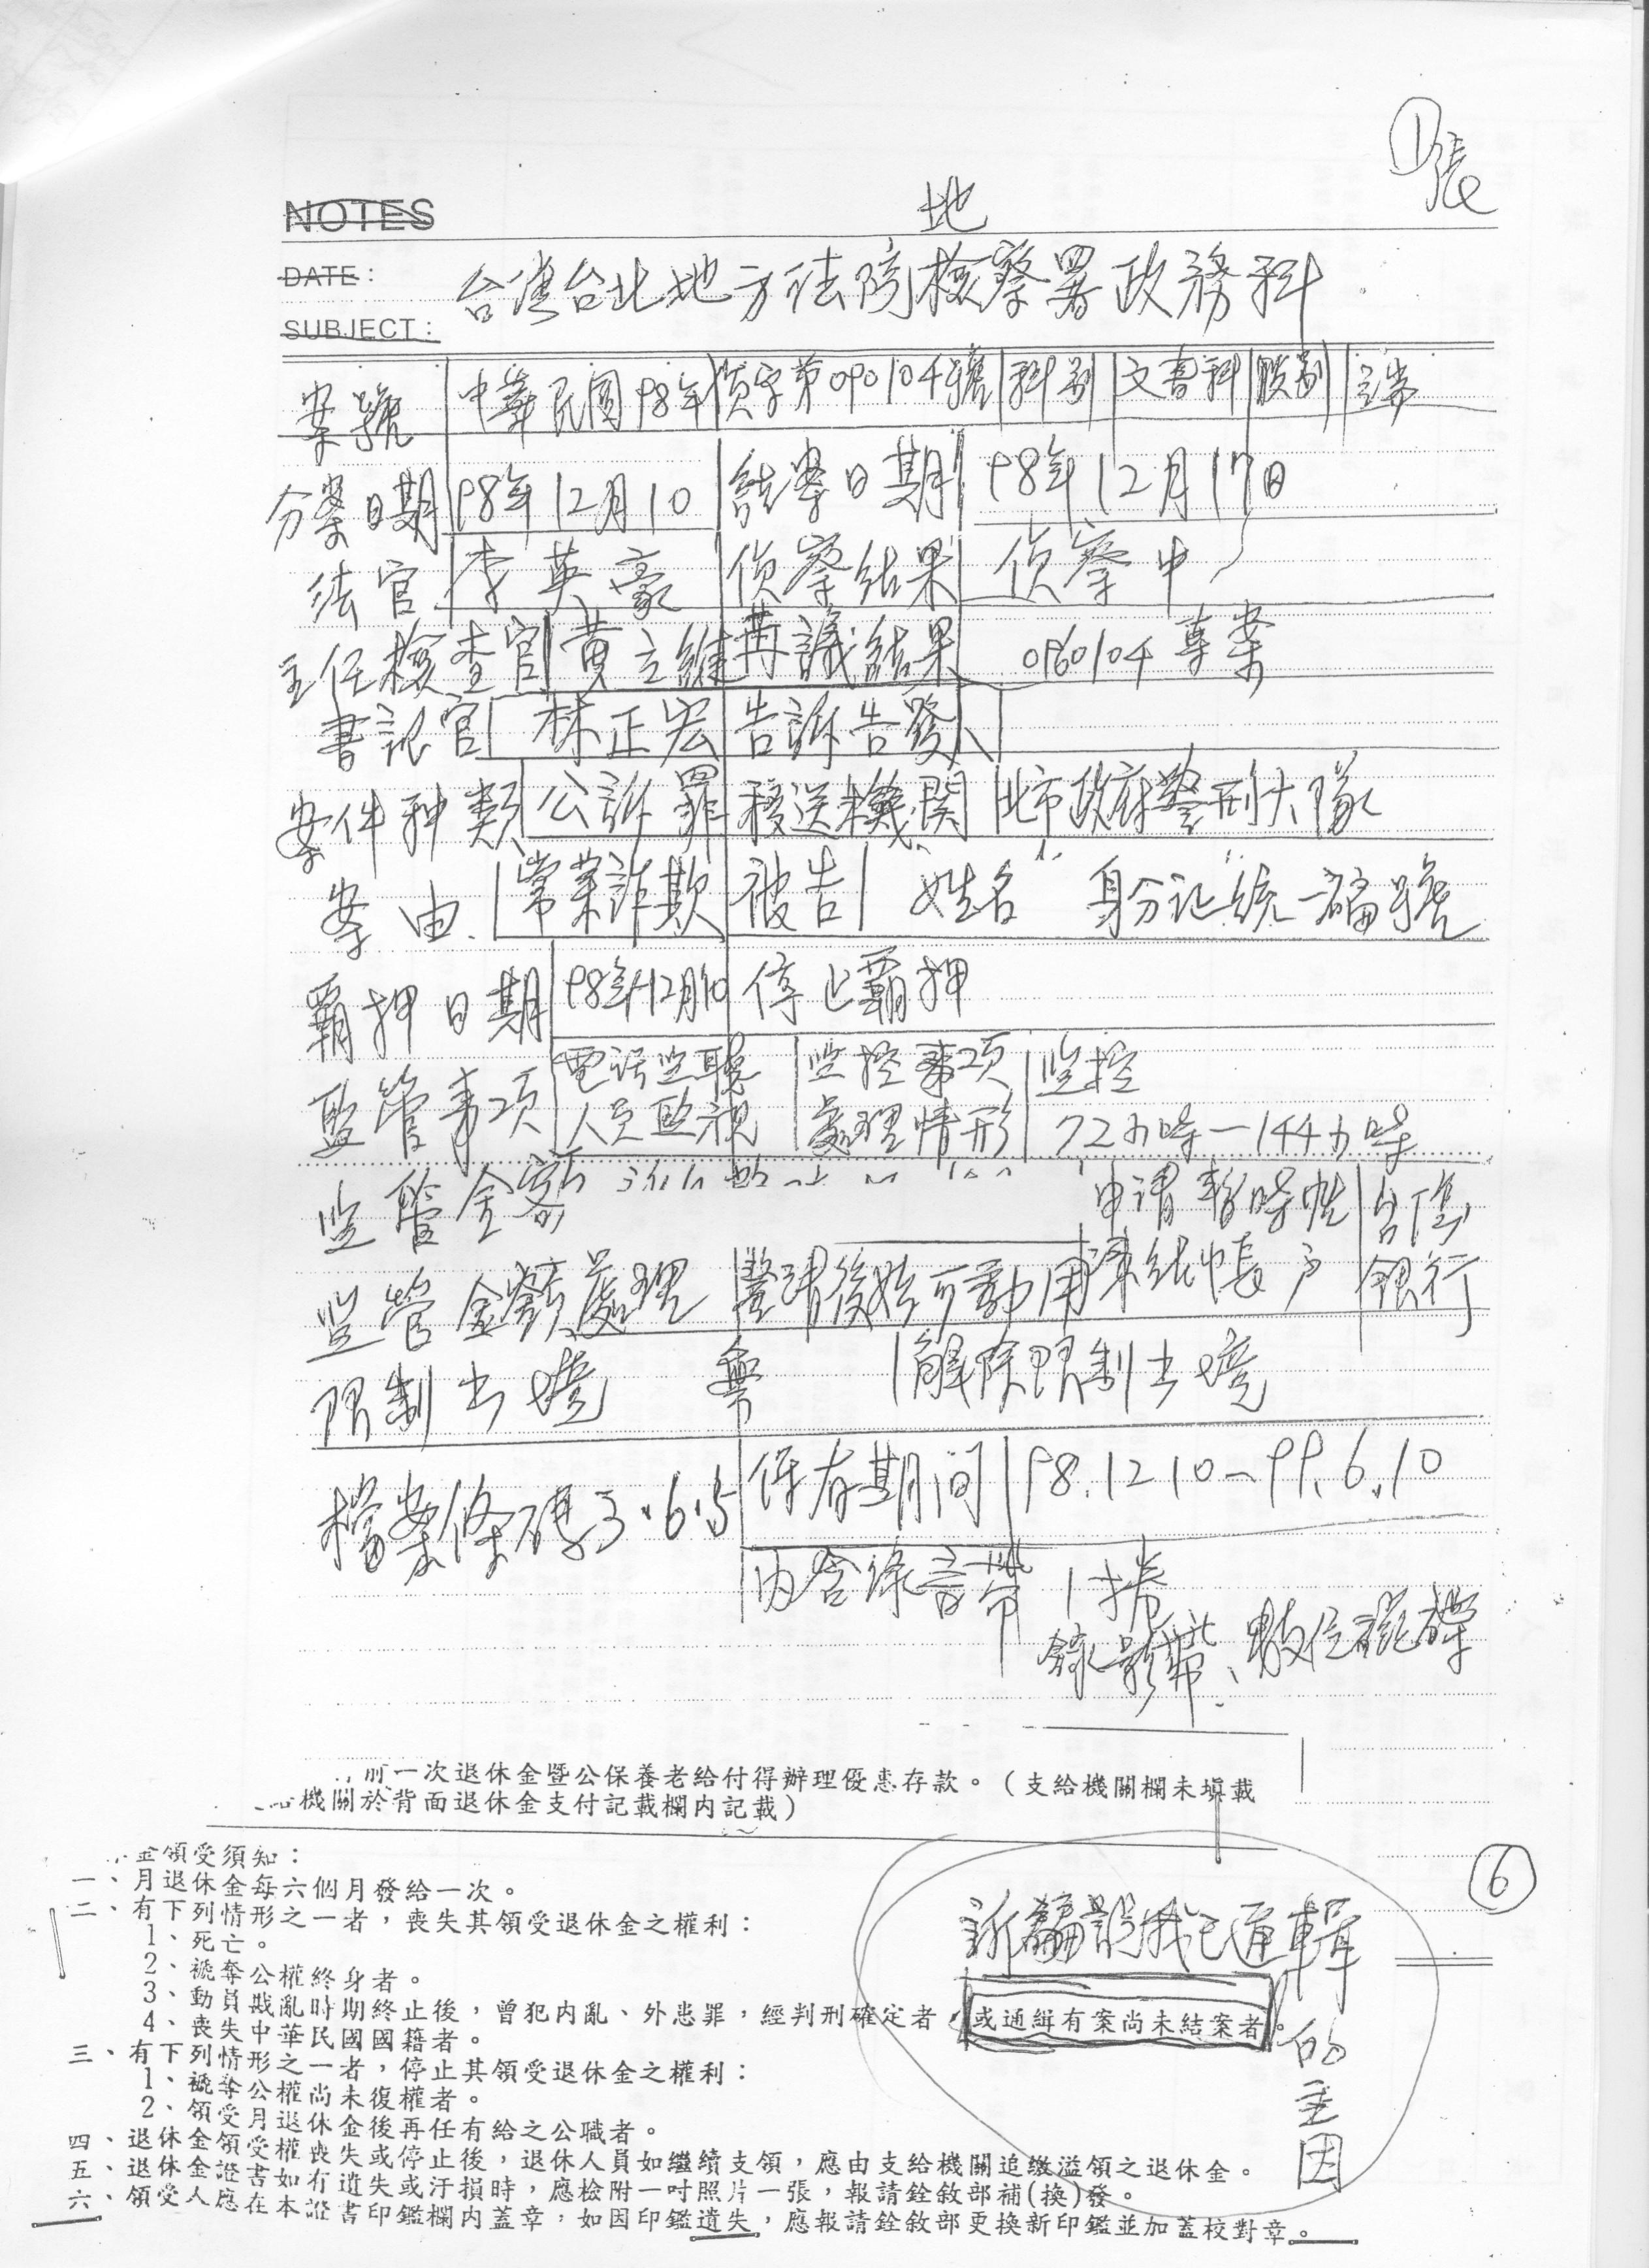 ①張
NOTES
地
DATE:
台湾台北地方法院檢察署政務科
SUBJECT:
案號 中華民國98年 偵字第090104號 科別 文書科 股別
分案日期 98年12月10 結案日期 98年12月17日
法官 李英豪 偵察結果 偵察中
主任檢查官 黃立維 再議結果 0160104 專案
書記官 林正宏 告訴告發人
案件种類 公訴罪 移送機関 北市政府警刑大隊
案由 常業詐欺 被告 "姓名" 身分証統一編號
覊押日期 98年12月10 停止覊押
監管事項 電话监聽 人员監視 监控事項 處理情形 监控 72小時－144小時
监管金額 申请暫時性 台湾
监管金額處理 釐清後始可動用 凍結帳户 銀行
限制出境 無 解除限制出境
檔案條碼 3.6.5 保存期间 98.12 10－99.6.10
内含錄音帶 1捲
錄影帶、數位磁碟
前一次退休金暨公保養老給付得辦理優惠存款。（支給機關欄未填載
機關於背面退休金支付記載欄內記載）
金領受須知：
一、月退休金每六個月發給一次。
二、有下列情形之一者，喪失其領受退休金之權利：
1、死亡。
2、褫奪公權終身者。
3、動員戡亂時期終止後，曾犯內亂、外患罪，經判刑確定者，或通緝有案尚未結案者。
4、喪失中華民國國籍者。
三、有下列情形之一者，停止其領受退休金之權利：
1、褫奪公權尚未復權者。
2、領受月退休金後再任有給之公職者。
四、退休金領受權喪失或停止後，退休人員如繼續支領，應由支給機關追繳溢領之退休金。
五、退休金證書如有遺失或汙損時，應檢附一吋照片一張，報請銓敘部補(換)發。
六、領受人應在本證書印鑑欄內蓋章，如因印鑑遺失，應報請銓敘部更換新印鑑並加蓋校對章。
⑥
訴騙說我已通輯
的主因